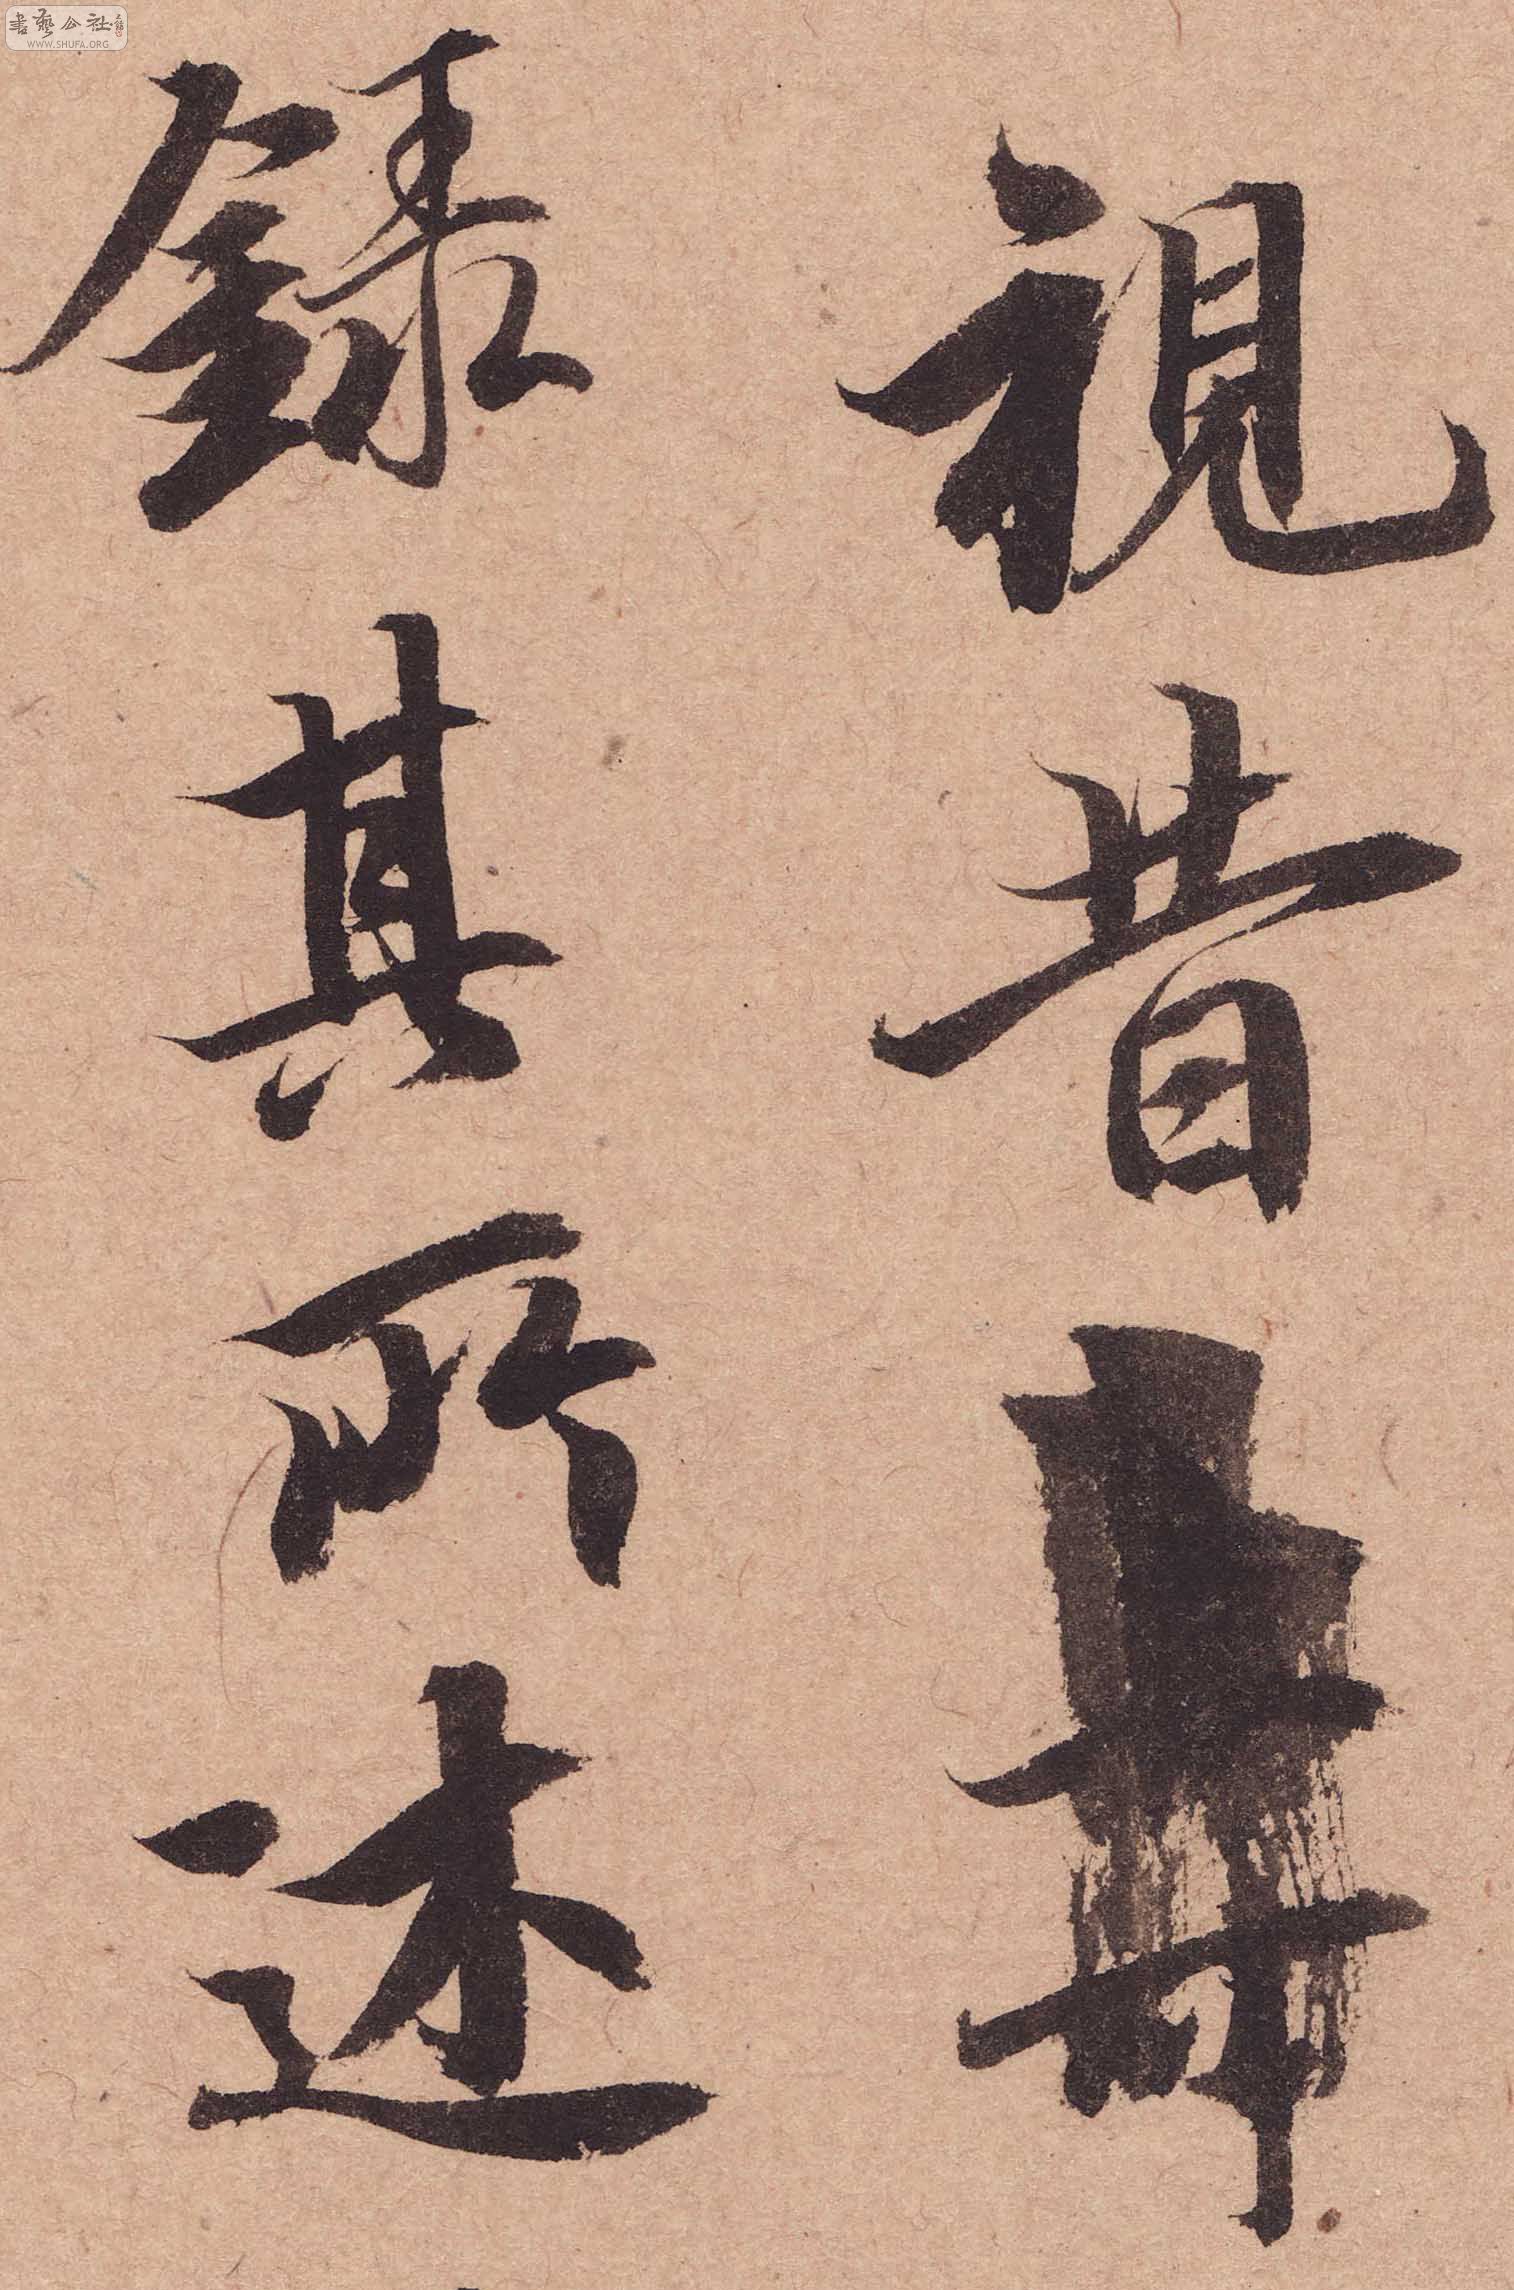 視昔
錄其所述
書藝公社
WWW.SHUFA.ORG